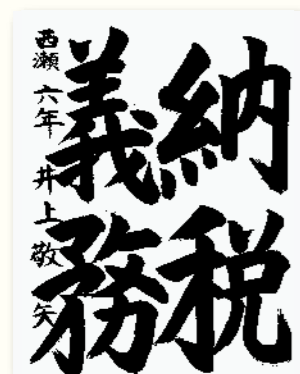 納税
義務
西瀬 六年 井上敬矢